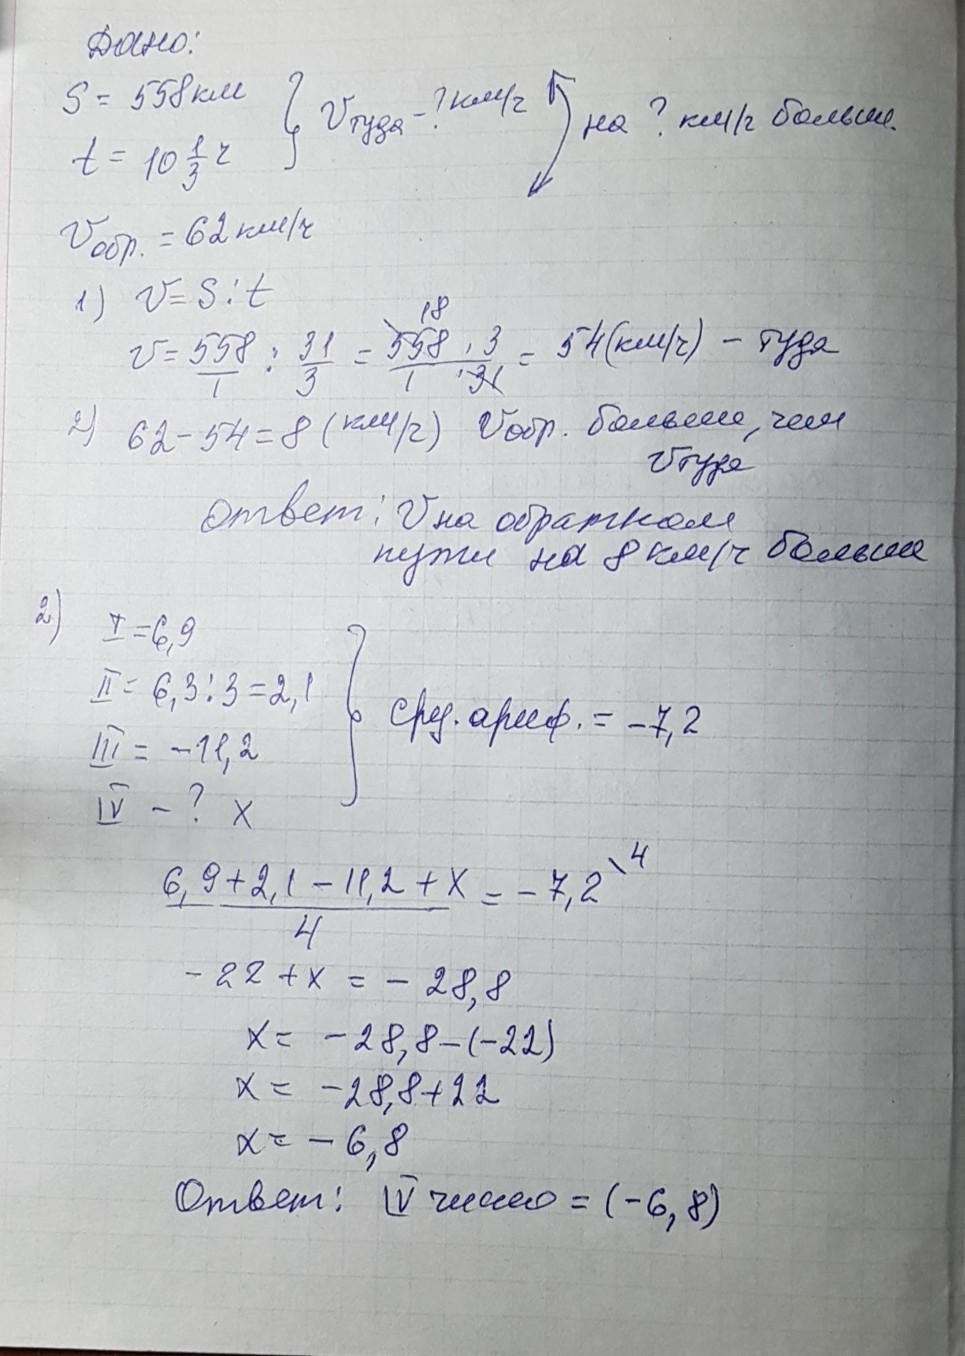 Дано:
S = 558 км
t = 10 1/3 ч
} Vтуда - ? км/ч
на ? км/ч больше.
Vобр. = 62 км/ч
1) V = S : t
V = 558/1 : 31/3 = (558 · 3)/(1 · 31) = 54 (км/ч) - туда
18
2) 62 - 54 = 8 (км/ч) Vобр. больше, чем
Vтуда
Ответ: V на обратном
пути на 8 км/ч больше
2) I = 6,9
II = 6,3 : 3 = 2,1
III = -11,2
IV - ? x
} Сред. ариф. = -7,2
(6,9 + 2,1 - 11,2 + x)/4 = -7,2 \4
-22 + x = -28,8
x = -28,8 - (-22)
x = -28,8 + 22
x = -6,8
Ответ: IV число = (-6,8)